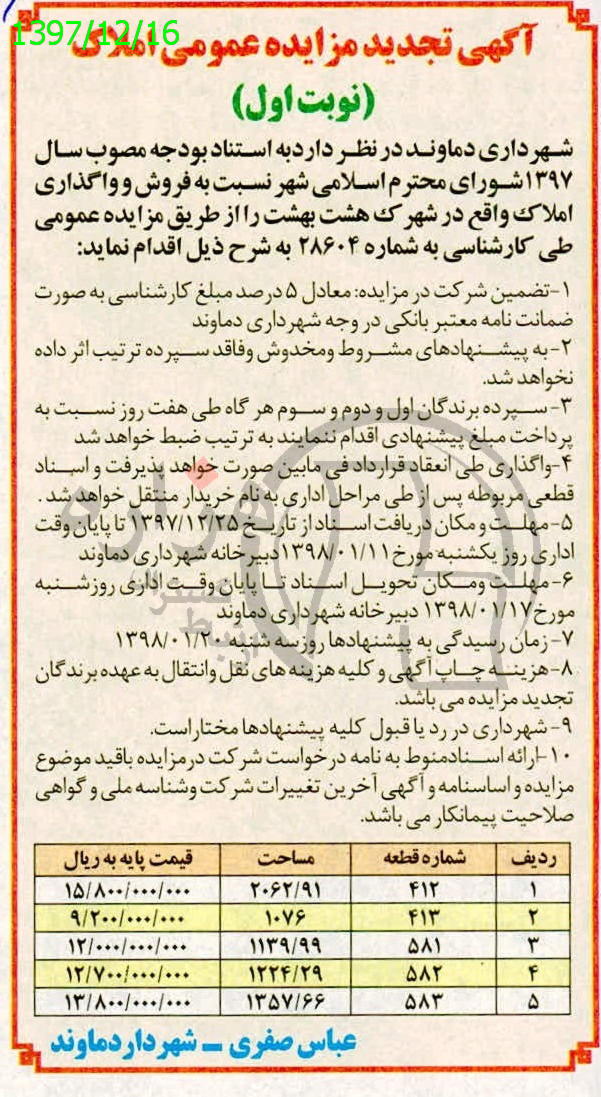 1397/12/16
آگهی تجدید مزایده عمومی املاک
(نوبت اول)
شهرداری دماوند در نظر دارد به استناد بودجه مصوب سال
۱۳۹۷ شورای محترم اسلامی شهر نسبت به فروش و واگذاری
املاک واقع در شهرک هشت بهشت را از طریق مزایده عمومی
طی کارشناسی به شماره ۲۸۶۰۴ به شرح ذیل اقدام نماید:
۱-تضمین شرکت در مزایده: معادل ۵ درصد مبلغ کارشناسی به صورت
ضمانت نامه معتبر بانکی در وجه شهرداری دماوند
۲-به پیشنهادهای مشروط ومخدوش وفاقد سپرده ترتیب اثر داده
نخواهد شد.
۳-سپرده برندگان اول و دوم و سوم هر گاه طی هفت روز نسبت به
پرداخت مبلغ پیشنهادی اقدام ننمایند به ترتیب ضبط خواهد شد
۴-واگذاری طی انعقاد قرارداد فی مابین صورت خواهد پذیرفت و اسناد
قطعی مربوطه پس از طی مراحل اداری به نام خریدار منتقل خواهد شد.
۵-مهلت و مکان دریافت اسناد از تاریخ ۱۳۹۷/۱۲/۲۵ تا پایان وقت
اداری روز یکشنبه مورخ ۱۳۹۸/۰۱/۱۱ دبیرخانه شهرداری دماوند
۶-مهلت ومکان تحویل اسناد تا پایان وقت اداری روزشنبه
مورخ ۱۳۹۸/۰۱/۱۷ دبیرخانه شهرداری دماوند
۷- زمان رسیدگی به پیشنهادها روزسه شنبه ۱۳۹۸/۰۱/۲۰
۸-هزینه چاپ آگهی و کلیه هزینه های نقل وانتقال به عهده برندگان
تجدید مزایده می باشد.
۹-شهرداری در رد یا قبول کلیه پیشنهادها مختاراست.
۱۰-ارائه اسنادمنوط به نامه درخواست شرکت درمزایده باقید موضوع
مزایده و اساسنامه و آگهی آخرین تغییرات شرکت وشناسه ملی و گواهی
صلاحیت پیمانکار می باشد.
ردیف شماره قطعه مساحت قیمت پایه به ریال
۱ ۴۱۲ ۲۰۶۲/۹۱ ۱۵/۸۰۰/۰۰۰/۰۰۰
۲ ۴۱۳ ۱۰۷۶ ۹/۲۰۰/۰۰۰/۰۰۰
۳ ۵۸۱ ۱۱۳۹/۹۹ ۱۲/۰۰۰/۰۰۰/۰۰۰
۴ ۵۸۲ ۱۲۲۴/۲۹ ۱۲/۷۰۰/۰۰۰/۰۰۰
۵ ۵۸۳ ۱۳۵۷/۶۶ ۱۳/۸۰۰/۰۰۰/۰۰۰
عباس صفری – شهردار دماوند
هزاره